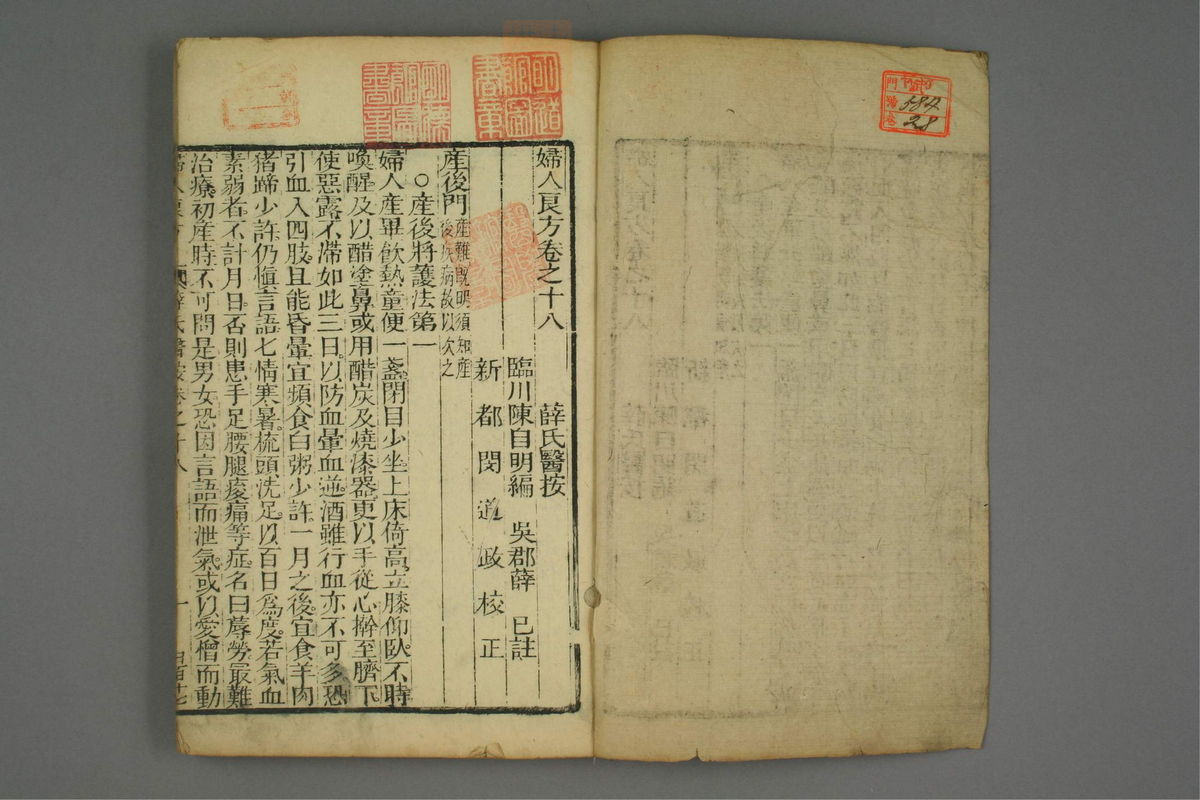 婦人良方卷之十八
薛氏醫按
臨川陳自明編 吳郡薛 已註
新都閔道政校正
產後門
產難既明須知產
後疾病故以次之
○產後將護法第一
婦人產畢飲熱童便一盞閉目少坐上床倚高立膝仰臥不時
喚醒及以醋塗鼻或用醋炭及燒漆器更以手從心擀至臍下
使惡露不滯如此三日以防血暈血逆酒雖行血亦不可多恐
引血入四肢且能昏暈宜頻食白粥少許一月之後宜食羊肉
猪蹄少許仍慎言語七情寒暑梳頭洗足以百日為度若氣血
素弱者不計月日否則患手足腰腿痠痛等症名曰蓐勞最難
治療初產時不可問是男女恐因言語而泄氣或以愛憎而動
584
28